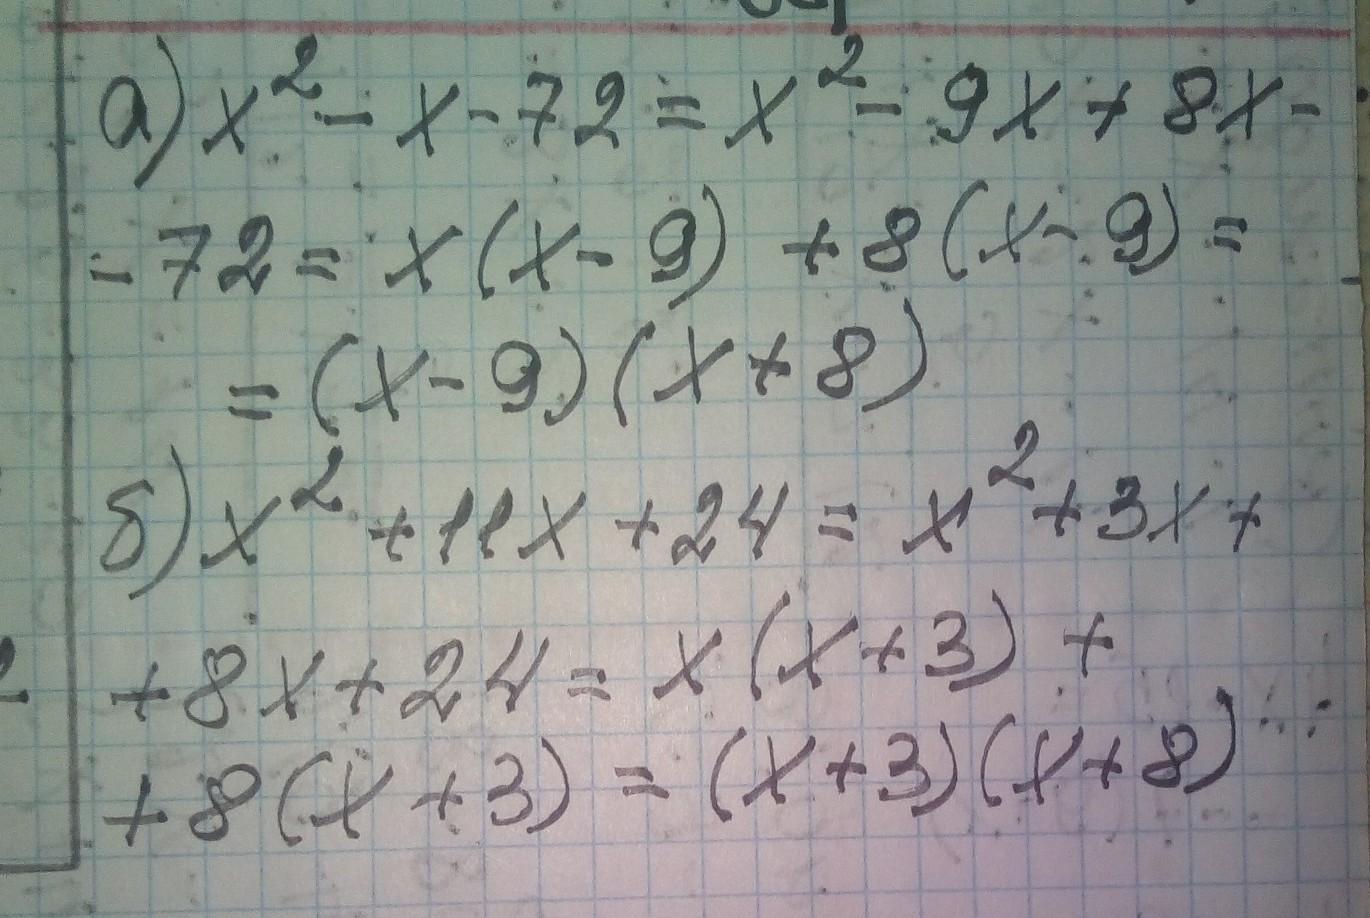 а) x² - x - 72 = x² - 9x + 8x -
- 72 = x (x - 9) + 8 (x - 9) =
= (x - 9) (x + 8)
б) x² + 11x + 24 = x² + 3x +
+ 8x + 24 = x (x + 3) +
+ 8 (x + 3) = (x + 3) (x + 8)